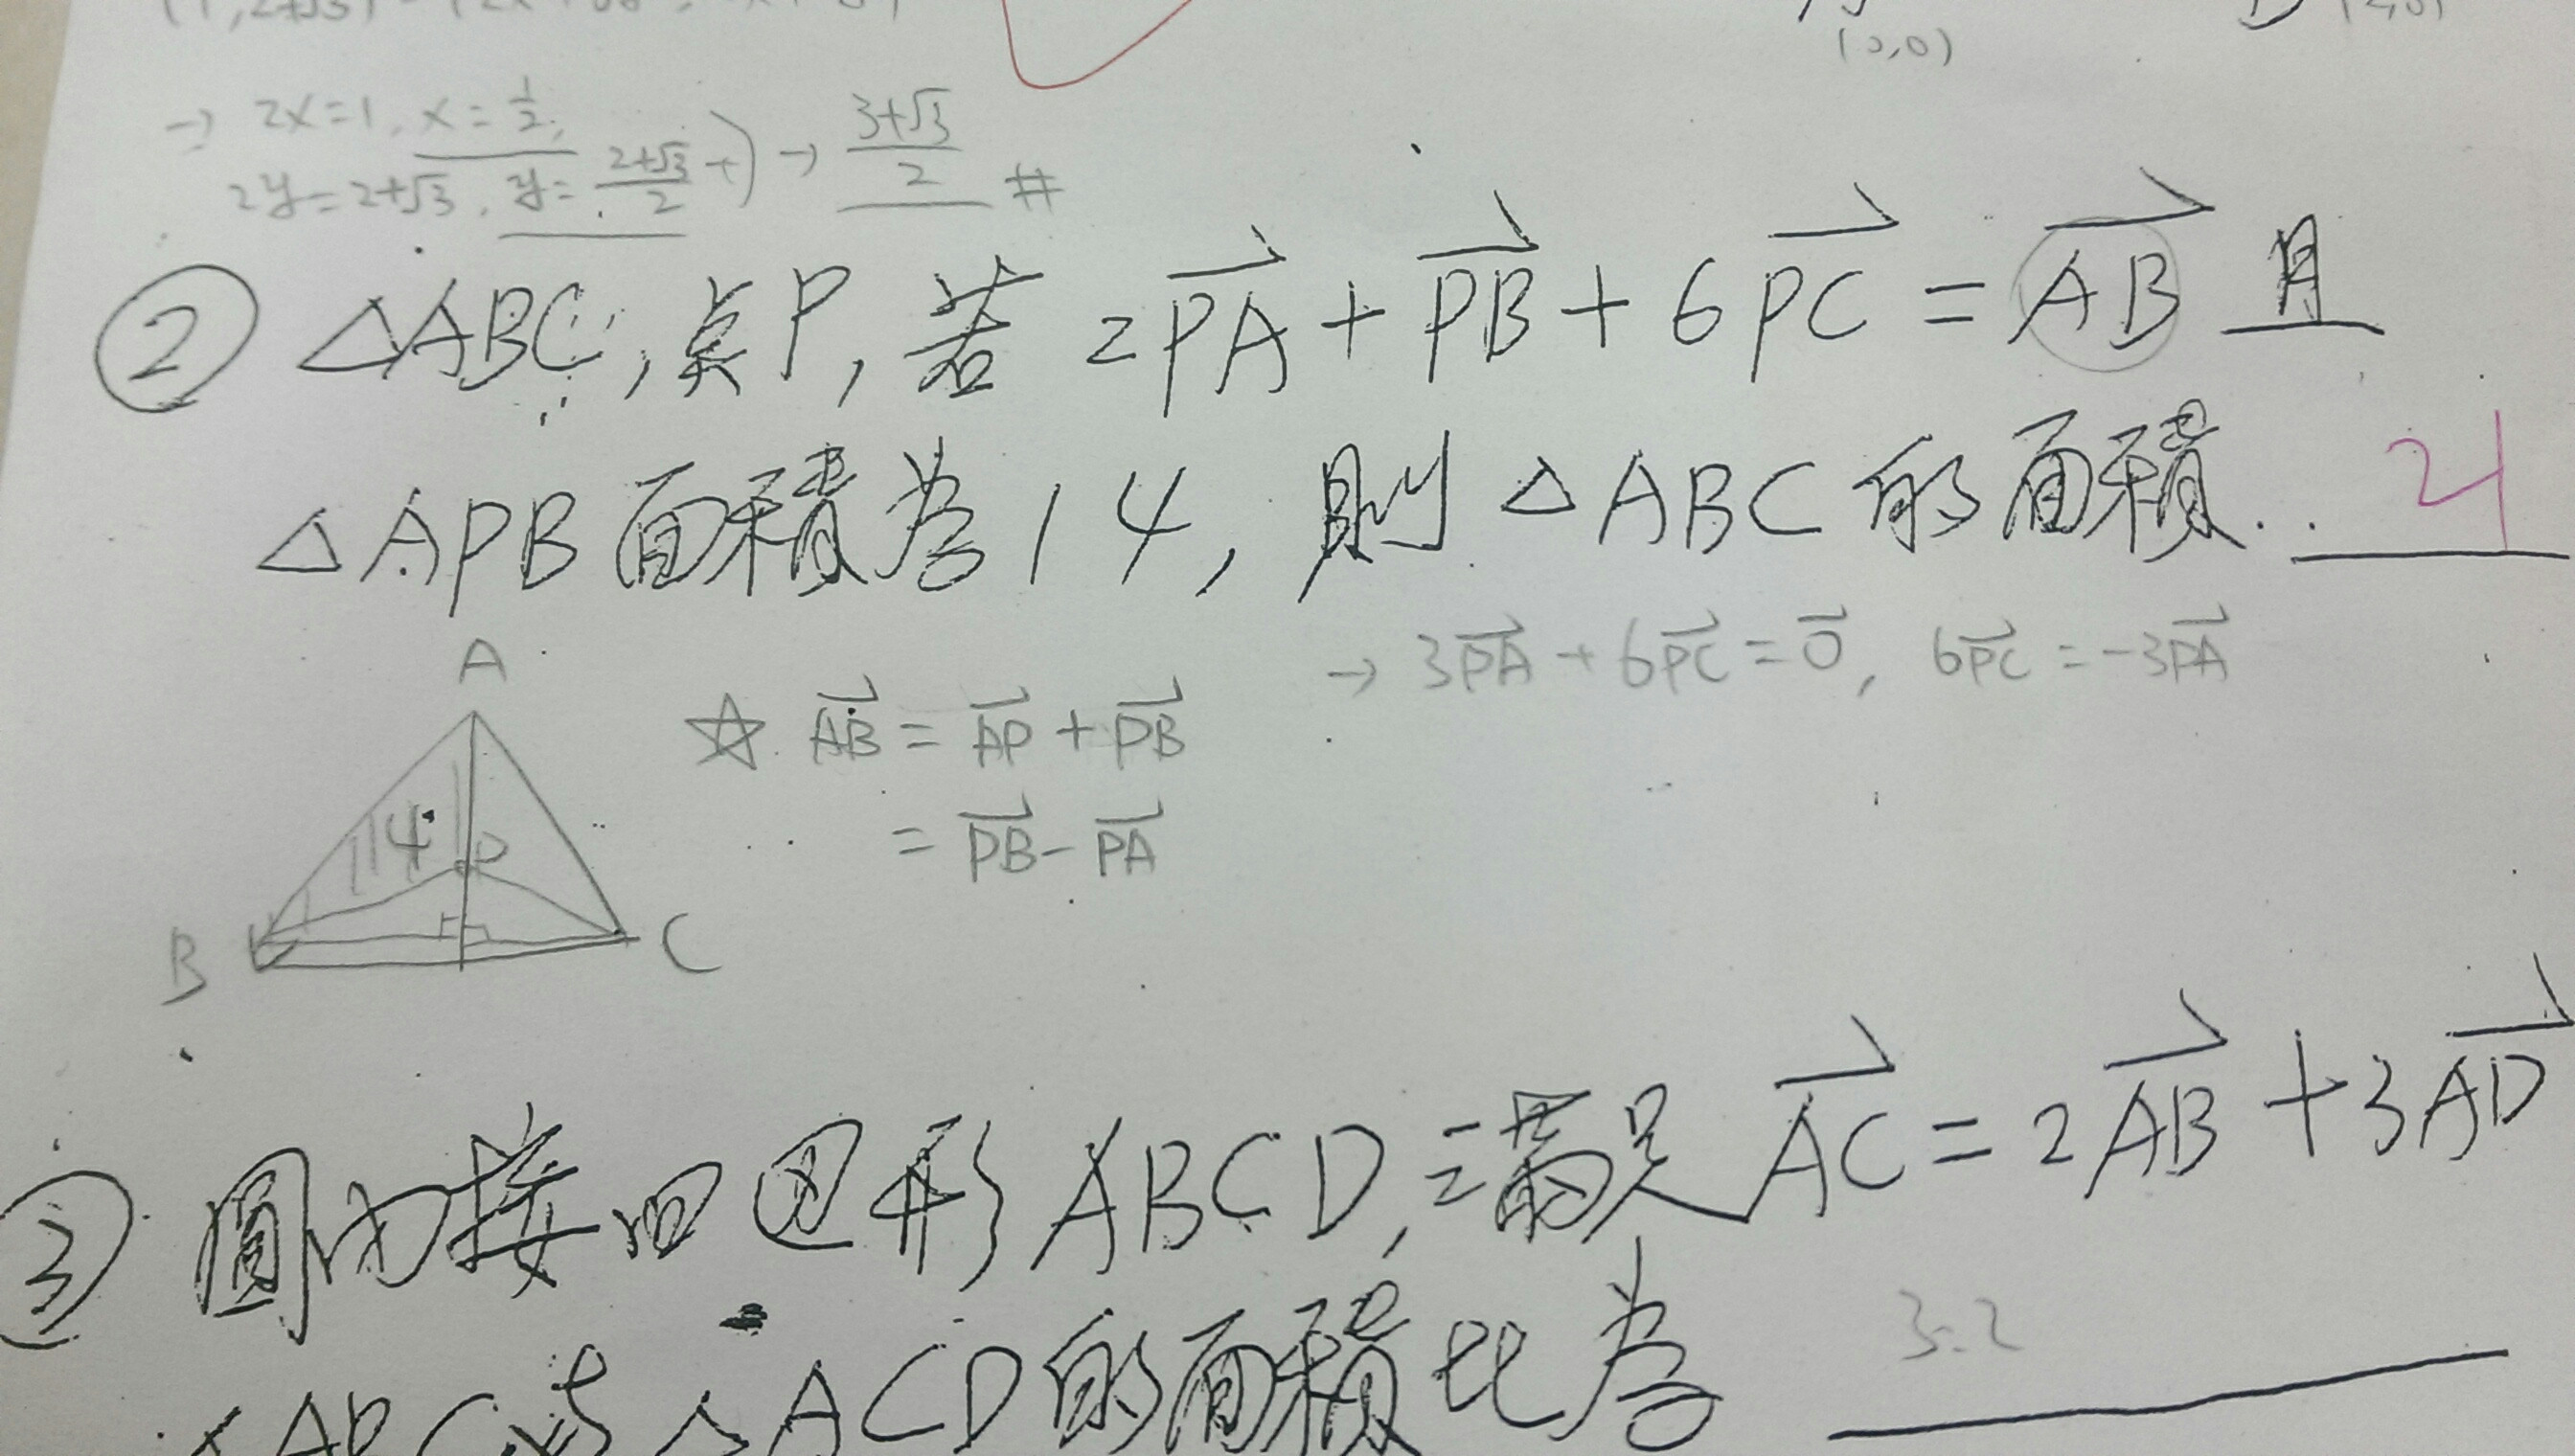 (0,0)
→ 2x=1, x=1/2,
2y=2+√3, y=(2+√3)/2 +) → (3+√3)/2 #
② △ABC,点P,若 2PA+PB+6PC=AB 且
△APB面積為14,則△ABC的面積... 21
→ 3PA+6PC=0, 6PC=-3PA
A
☆ AB=AP+PB
=PB-PA
14 P
B C
③ 圓內接四邊形ABCD,滿足AC=2AB+3AD
△ACD的面積比為 3:2